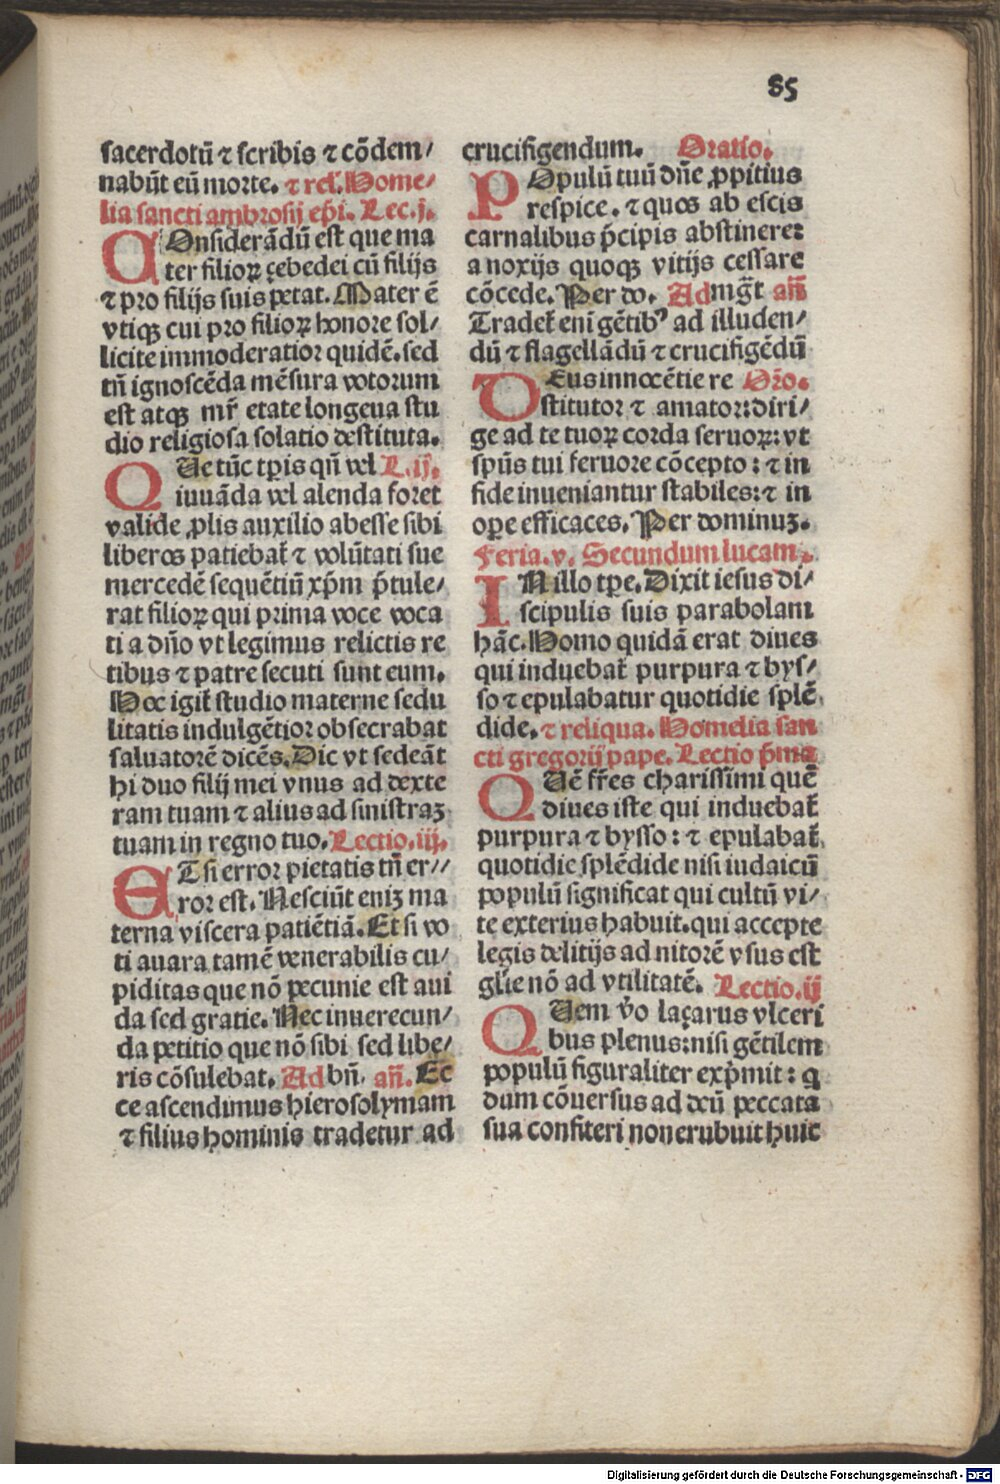 85
sacerdotū ⁊ scribis ⁊ cōdem/
nabūt eū morte. ⁊ rel. Home/
lia sancti ambrosij epī. Lec.j.
COnsiderādū est que ma
ter filioꝝ çebedei cū filijs
⁊ pro filijs suis petat. Mater ē
vtiqꝫ cui pro filioꝝ honore sol/
licite immoderatior quidē. sed
tñ ignoscēda mēsura votorum
est atqꝫ mr̄ etate longeua stu
dio religiosa solatio destituta.
QUe tūc tꝑis qñ vel L.ij.
iuuāda vel alenda foret
valide ꝓlis auxilio abesse sibi
liberos patiebat᷑ ⁊ volūtati sue
mercedē sequētiū xp̄m p̄tule/
rat filioꝝ qui prima voce voca
ti a dño vt legimus relictis re
tibus ⁊ patre secuti sunt eum.
Hoc igit᷑ studio materne sedu
litatis indulgētior obsecrabat
saluatorē dicēs. Dic vt sedeāt
hi duo filij mei vnus ad dexte
ram tuam ⁊ alius ad sinistraꝫ
tuam in regno tuo. Lectio.iij.
ETsi error pietatis tñ er//
ror est. Nesciūt eniꝫ ma
terna viscera patiētiā. Et si vo
ti auara tamē venerabilis cu/
piditas que nō pecunie est aui
da sed gratie. Nec inuerecun/
da petitio que nō sibi sed libe/
ris cōsulebat. Ad bñ. añ. Ec
ce ascendimus hierosolymam
⁊ filius hominis tradetur ad
crucifigendum. Oratio.
POpulū tuū dñe ꝓpitius
respice. ⁊ quos ab escis
carnalibus p̄cipis abstinere:
a noxijs quoqꝫ vitijs cessare
cōcede. Per do. Ad mg̃t añ
Tradet᷑ eni gētibꝰ ad illuden/
dū ⁊ flagellādū ⁊ crucifigēdū
DEus innocētie re Oro.
stitutor ⁊ amator: diri/
ge ad te tuoꝝ corda seruoꝝ: vt
spūs tui feruore cōcepto: ⁊ in
fide inueniantur stabiles: ⁊ in
opere efficaces. Per dominuꝫ.
Feria. v. Secundum lucam.
IN illo tꝑe. Dixit iesus di/
scipulis suis parabolam
hāc. Homo quidā erat diues
qui induebat᷑ purpura ⁊ bys/
so ⁊ epulabatur quotidie splē
dide. ⁊ reliqua. Homelia san
cti gregorij pape. Lectio p̄ma
QUē fr̄es charissimi quē
diues iste qui induebat᷑
purpura ⁊ bysso: ⁊ epulabat᷑
quotidie splēdide nisi iudaicū
populū significat qui cultū vi/
te exterius habuit. qui accepte
legis delitijs ad nitorē vsus est
gl̄ie nō ad vtilitatē. Lectio.ij
QUem v̄o laçarus vlceri
bus plenus: nisi gētilem
populū figuraliter exp̄mit: q
dum cōuersus ad deū peccata
sua confiteri non erubuit huic